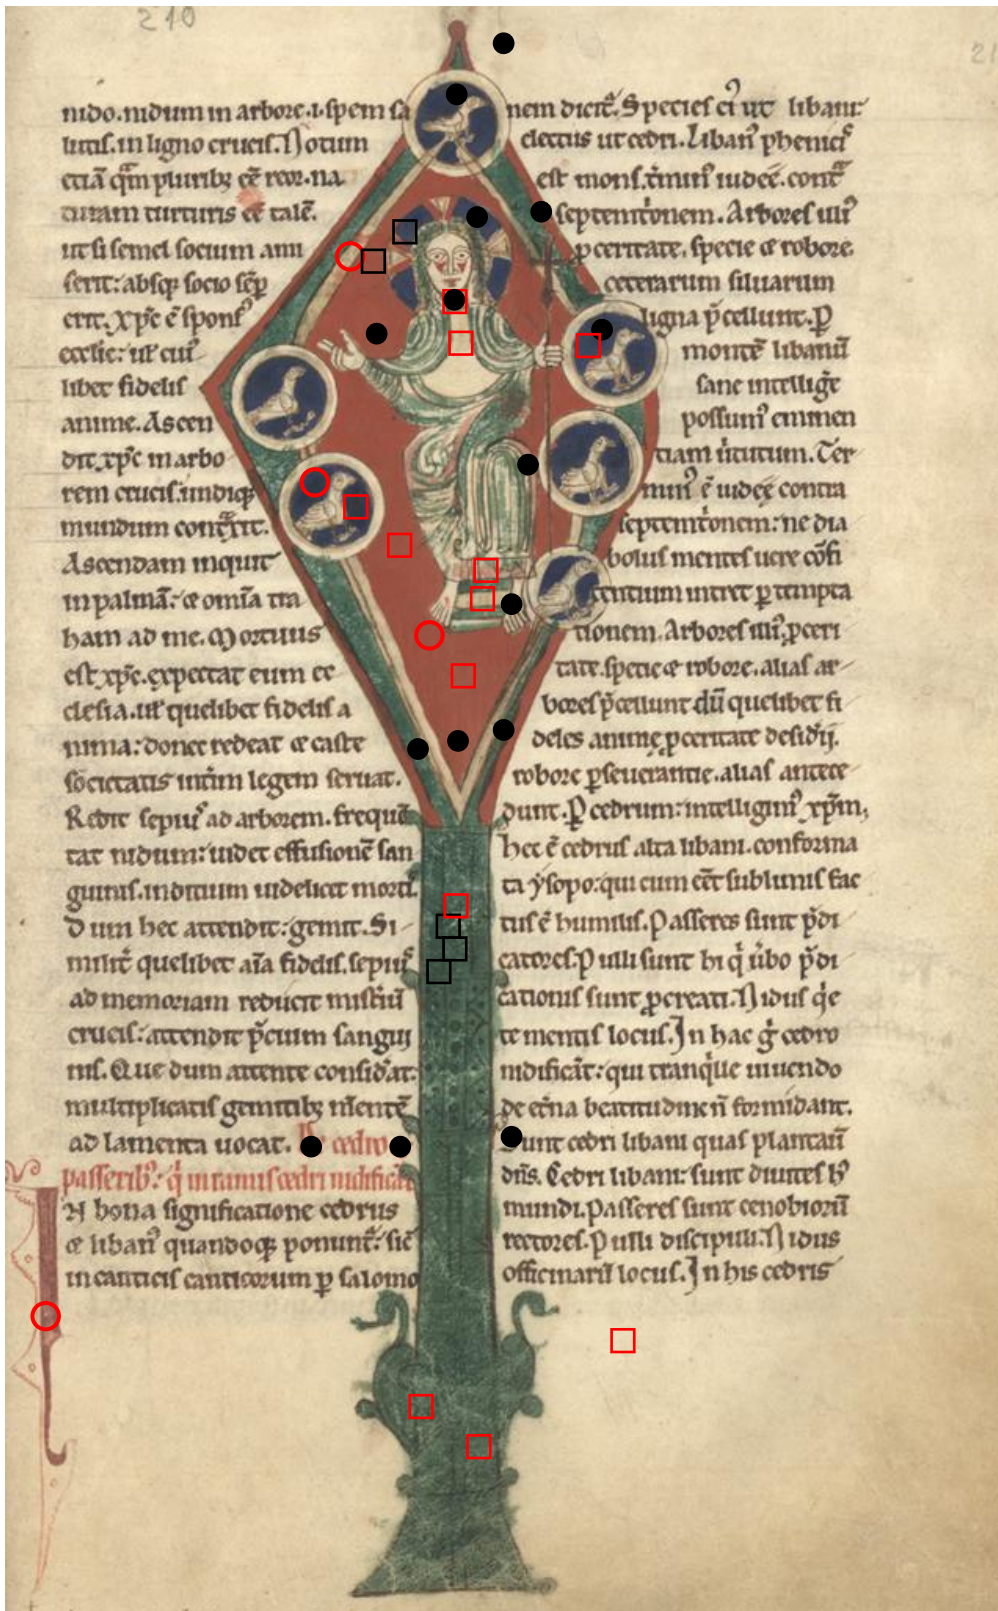 210
nido. nidum in arbore. i. spem sa
lutis. in ligno crucis. Notum
etiā qm̄ pluribꝫ eē reor. na
turam turturis eē talē.
ut si semel socium ami
serit: absqꝫ socio sēp
erit. xp̄c ē spons᷒
ecclie: ul̓ cui᷒
libet fidelis
anime. Ascen
dit xp̄c in arbo
rem crucis. undiqꝫ
mundum
Ascendam inquit
in palmā: ⁊ omīa tra
ham ad me. Mortuus
est xp̄c. expectat eum ec
clesia. ul̓ quelibet fidelis a
nima: donec redeat ⁊ caste
societatis intim legem seruat.
Redit sepiu᷒ ad arborem. frequē
tat nidum: uidet effusionē san
guinis. inditium uidelicet morti.
Dum hec attendit: gemit. Si
milit̄ quelibet aīa fidelis. sepiu᷒
ad memoriam reducit mist̄iū
crucis: attendit p̄cium sangui
nis. Que dum attente consid̄at:
multiplicatis gemitibꝫ m̄entē
ad lamenta uocat. De cedro
passeribꝫ: q̇ in ramis cedri nidificāt
In bona significatione cedrus
⁊ liban᷒ quandoqꝫ ponunt᷑: sic̄
in canticis canticorum ꝑ salomo
21
nem dicit᷑. Species ei᷒ ut libani:
electus ut cedri. Liban᷒ phenici᷒
est mons. t̄min᷒ iudeę. cont̄
septemt̓onem. Arbores illi᷒
ꝓceritate. specie ⁊ robore
ceterarum siluarum
ligna p̄cellunt. ꝑ
montē libanū
sane intellige
possum᷒ eminen
tiam uirtutum. Ter
min᷒ ē iudeę contra
septemt̓onem: ne dia
bolus mentes uere cōfi
tentium intret ꝑ tempta
tionem. Arbores illi᷒ ꝓceri
tate. specie ⁊ robore. alias ar
bores p̄cellunt dū quelibet fi
deles animę ꝓceritate desid̓ij.
robore ꝑseuerantie. alias antece
dunt. ꝑ cedrum: intelligim᷒ xp̄m,
hec ē cedrus alta libani. conforma
ta ysopo: qui cum eēt sublimis fac
tus ē humilis. Passeres sunt p̄di
catores. Pulli sunt hi q̇ ūbo p̄di
cationis sunt ꝓcreati. Nidus q̇e
te mentis locus. In hac ġ cedro
nidificāt: qui tranq̇lle uiuendo
de et̄na beatitudine n̄ formidant.
Sunt cedri libani quas plantauī
dn̄s. Cedri libani: sunt diuites h᷒
mundi. Passeres sunt cenobiorū
rectores. Pulli discipuli. Nidus
officinarū locus. In his cedris